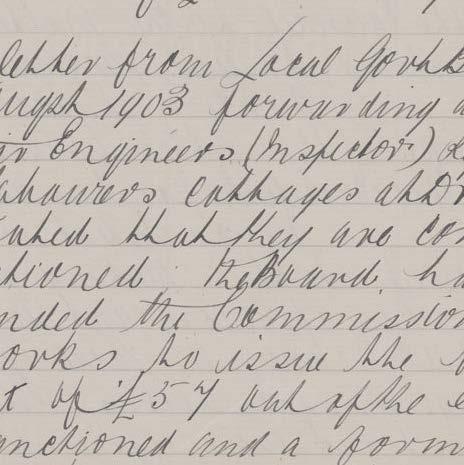 letter from Local Govt B
August 1903 forwarding a
Engineers (Inspector)
Labourers cottages at D
tated that they are con
ctioned. The Board ha
nded the Commission
orks to issue the
t of £57 out of the
anctioned and a form